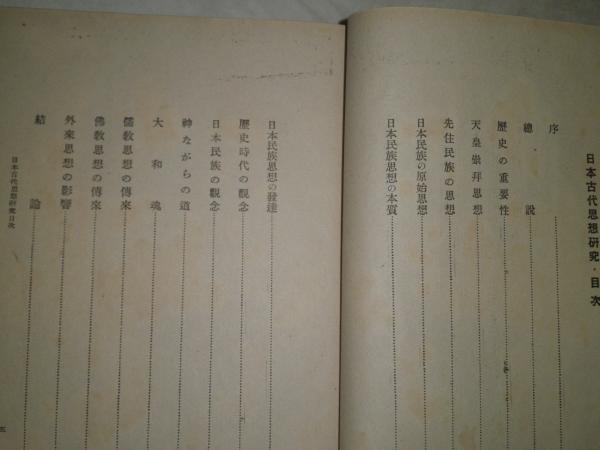 日本古代思想研究・目次
序
總說
歷史の重要性
天皇崇拜思想
先住民族の思想
日本民族の原始思想
日本民族思想の本質
日本民族思想の發達
歷史時代の觀念
日本民族の觀念
神ながらの道
大和魂
儒敎思想の傳來
佛敎思想の傳來
外來思想の影響
結論
日本古代思想硏究目次